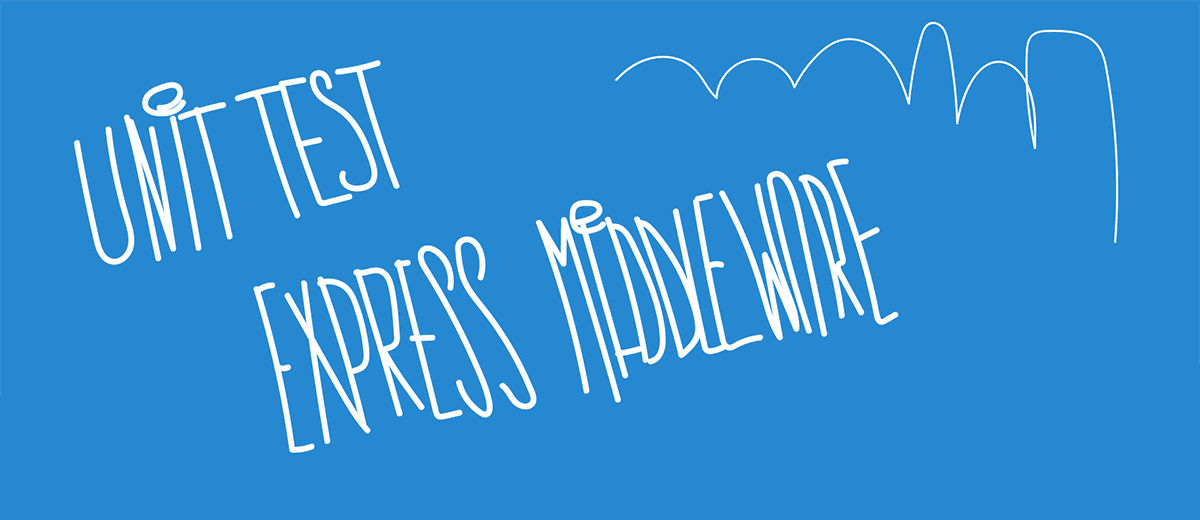 UNIT TEST
EXPRESS MIDDLEWARE